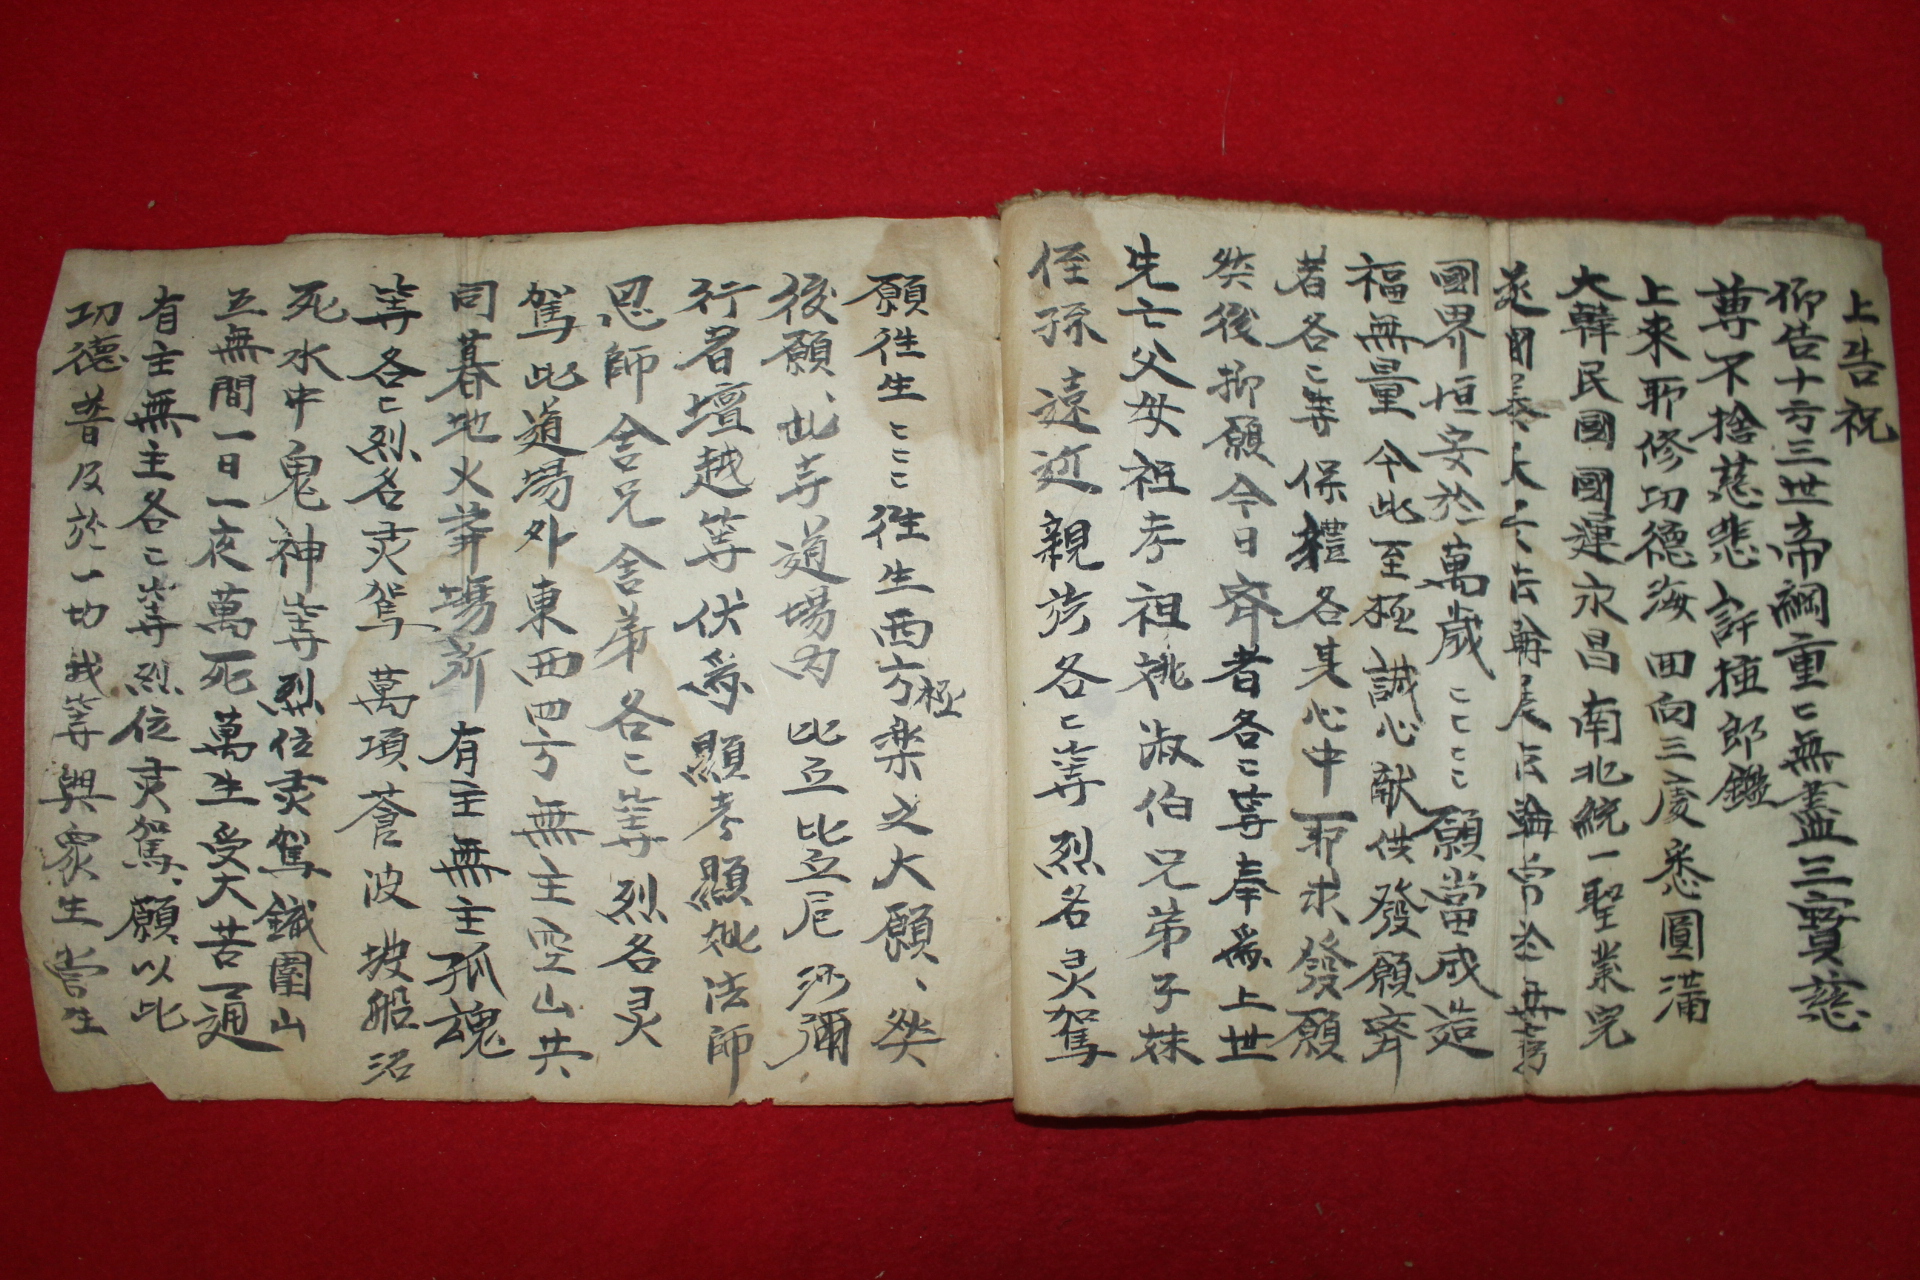 上告祝
仰告十方三世帝網重〻無盡三寶慈
尊不捨慈悲許捶郎鑑
上来所修功德海回向三處悉圓滿
大韓民國國運永昌南北統一聖業完
國界恒安於萬歲〻〻〻〻願當成造
福無量今此至極誠心献供發願齊
者各〻等保體各其心中所求發願
然後抑願今日齊者各〻等奉爲上世
先亡父母祖考祖妣淑伯兄弟子妹
侄孫遠近親族各〻等烈名灵駕
願徃生〻〻〻徃生西方極楽之大願、然
後願、此寺道場內比丘比丘尼沙彌
行者壇越等伏爲顯考顯妣法師
恩師舎兄舎弟各〻等烈名灵
駕此道場外東西四方無主空山共
同暮地火葬場所有主無主孤魂
等各〻烈名灵駕萬項蒼波披船沼
死水中鬼神等烈位灵駕鐵圍山
五無間一日一夜萬死萬生受大苦通
有主無主各〻等烈位灵駕、願以此
功德普及於一切我等與衆生當生